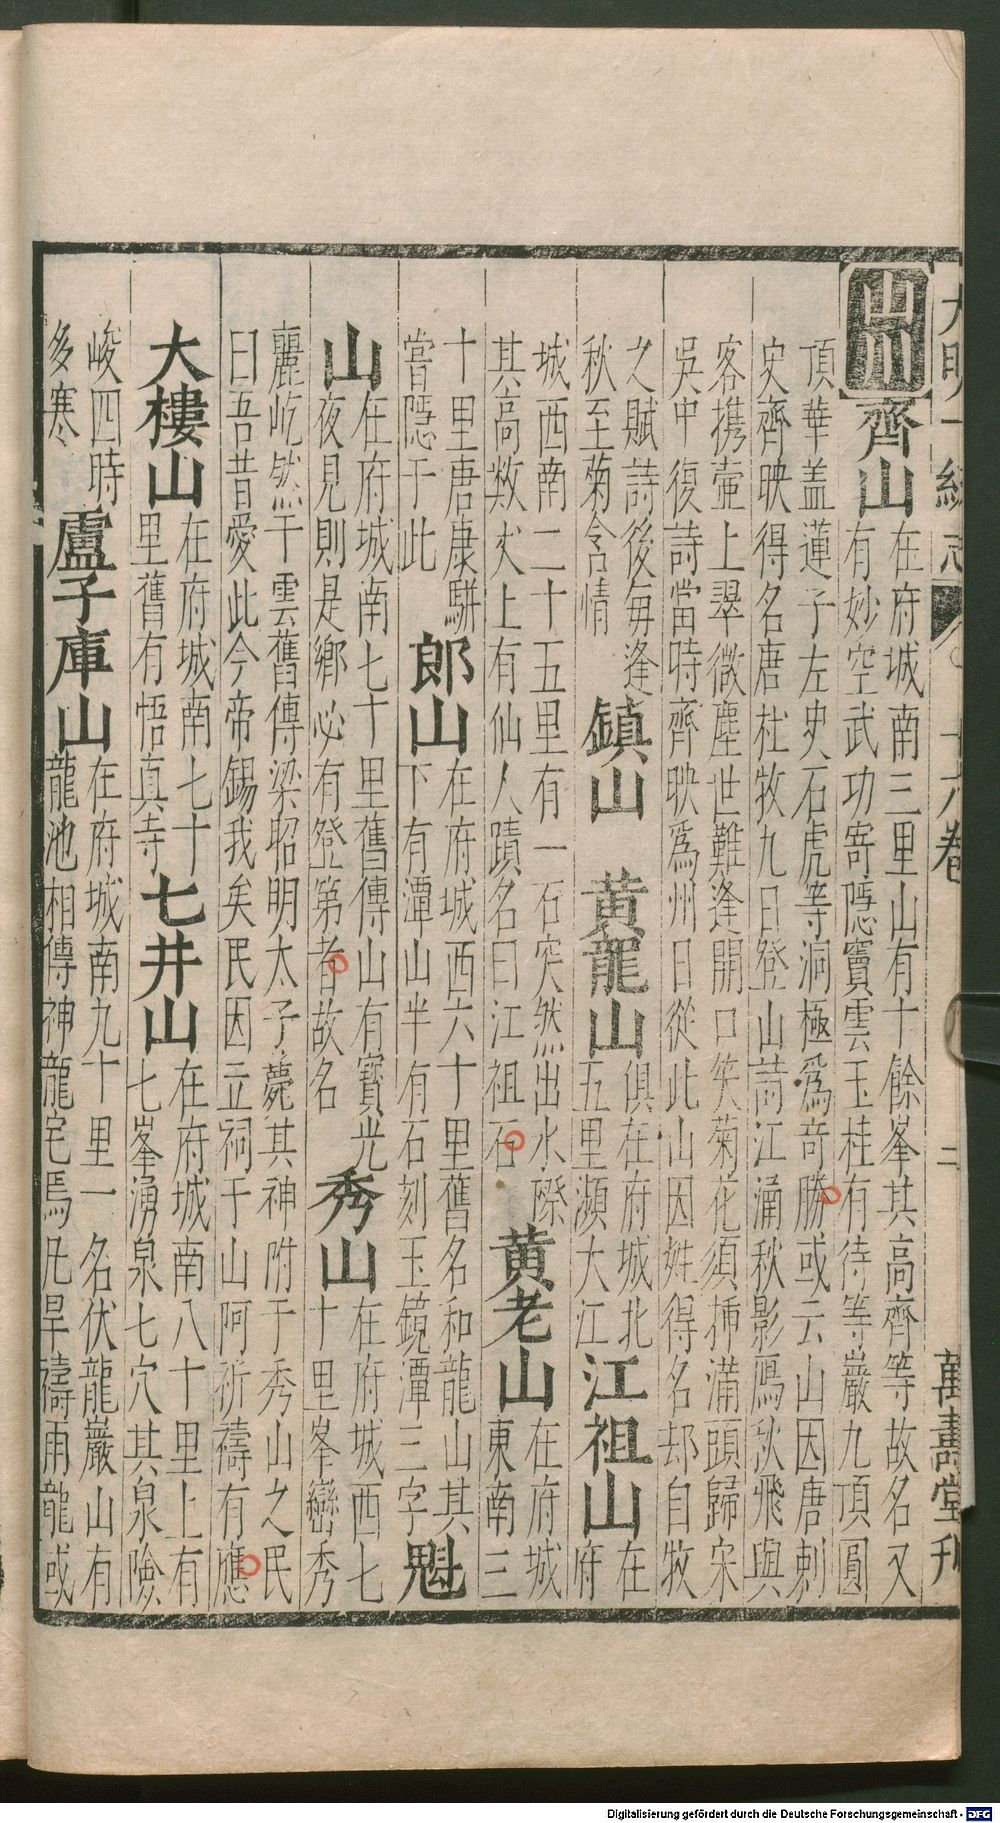 大明一統志 十六卷 二 萬壽堂刊
山川
齊山
在府城南三里山有十餘峯其高齊等故名又
有妙空武功寄隱竇雲玉桂有待等巖九頂圓
頂華盖蓮子左史石虎等洞極爲奇勝或云山因唐刺
史齊映得名唐杜牧九日登山詩江涵秋影鴈秋飛與
客携壺上翠微塵世難逢開口笑菊花須插滿頭歸宋
吳中復詩當時齊映爲州日從此山因姓得名却自牧
之賦詩後每逢
秋至菊含情
鎮山
黄龍山
俱在府城北
五里瀕大江
江祖山
在
府
城西南二十五里有一石突然出水際
其高數丈上有仙人蹟名曰江祖石
黄老山
在府城
東南三
十里唐康駢
嘗隱于此
郎山
在府城西六十里舊名和龍山其
下有潭山半有石刻玉鏡潭三字
魁
山
在府城南七十里舊傳山有寳光
夜見則是鄉必有登第者故名
秀山
在府城西七
十里峯巒秀
麗屹然干雲舊傳梁昭明太子薨其神附于秀山之民
曰吾昔愛此今帝錫我矣民因立祠于山阿祈禱有應
大樓山
在府城南七十
里舊有悟真寺
七井山
在府城南八十里上有
七峯湧泉七穴其泉險
峻四時
多寒
盧子庫山
在府城南九十里一名伏龍巖山有
龍池相傳神龍宅焉凡旱禱雨龍或
Digitalisierung gefördert durch die Deutsche Forschungsgemeinschaft - DFG